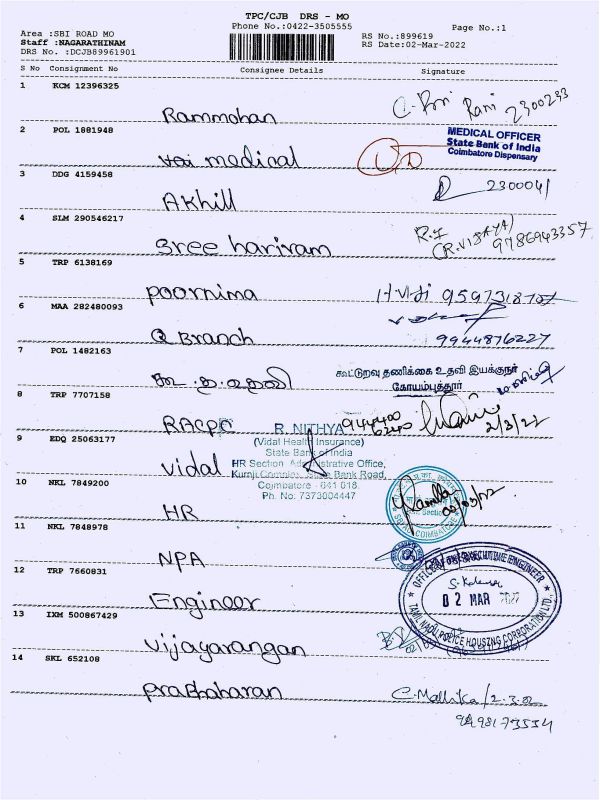 TPC/CJB DRS - MO
Phone No.:0422-3505555
Page No.:1
Area :SBI ROAD MO
Staff :NAGARATHINAM
DRS No. :DCJB89961901
RS No.:899619
RS Date:02-Mar-2022
S No Consignment No Consignee Details Signature
1 KCM 12396325
Rammohan
Rani 2300293
2 POL 1881948
medical
MEDICAL OFFICER
State Bank of India
Coimbatore Dispensary
3 DDG 4159458
Akhill
2300041
4 SLM 290546217
Sree hariram
9786943357
5 TRP 6138169
Poornima
6 MAA 282480093
Q Branch
9944876227
7 POL 1482163
கூ.த.உதவி
கூட்டுறவு தணிக்கை உதவி இயக்குநர்
கோயம்புத்தூர்
8 TRP 7707158
RACPC
2/3/22
9 EDQ 25063177
Vidal
R. NITHYA
(Vidal Health Insurance)
State Bank of India
HR Section Administrative Office,
State Bank Road,
Coimbatore - 641 018.
Ph. No: 7373004447
10 NKL 7849200
HR
COIMBATORE
11 NKL 7848978
NPA
12 TRP 7660831
Engineer
EXECUTIVE ENGINEER
02 MAR 2022
TAMIL NADU POLICE HOUSING CORPORATION LTD.,
13 IXM 500867429
Vijayarangan
14 SKL 652108
Prabhaharan
C. Mallika/2.3.22